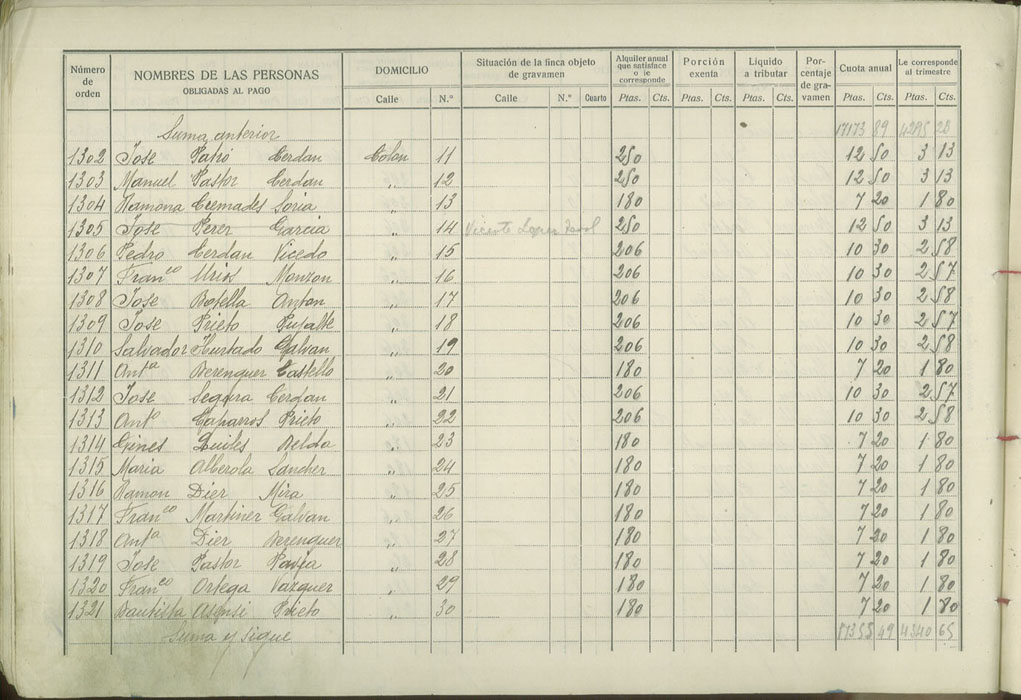 Número de orden NOMBRES DE LAS PERSONAS OBLIGADAS AL PAGO DOMICILIO Situación de la finca objeto de gravamen Alquiler anual que satisface o le corresponde Porción exenta Líquido a tributar Por-centaje de gra-vamen Cuota anual Le corresponde al trimestre
Calle N.º Calle N.º Cuarto Ptas. Cts. Ptas. Cts. Ptas. Cts. Ptas. Cts. Ptas. Cts.
Suma anterior 17173 89 4295 23
1302 Jose Patró Cerdan Colon 11 250 12 50 3 13
1303 Manuel Pastor Cerdan " 12 250 12 50 3 13
1304 Ramona Cremades Soria " 13 180 7 20 1 80
1305 Jose Perez Garcia " 14 Vicente Lopez 250 12 50 3 13
1306 Pedro Cerdan Vicedo " 15 206 10 30 2 58
1307 Franco Urios Monzon " 16 206 10 30 2 57
1308 Jose Botella Anton " 17 206 10 30 2 58
1309 Jose Prieto Pujalte " 18 206 10 30 2 57
1310 Salvador Hurtado Galvan " 19 206 10 30 2 58
1311 Anta Berenguer Castello " 20 180 7 20 1 80
1312 Jose Segura Cerdan " 21 206 10 30 2 57
1313 Anto Caparros Prieto " 22 206 10 30 2 58
1314 Gines Quiles Belda " 23 180 7 20 1 80
1315 Maria Alberola Sanchez " 24 180 7 20 1 80
1316 Ramon Diez Mira " 25 180 7 20 1 80
1317 Franco Martinez Galvan " 26 180 7 20 1 80
1318 Anta Diez Berenguer " 27 180 7 20 1 80
1319 Jose Pastor Pavia " 28 180 7 20 1 80
1320 Franco Ortega Vazquez " 29 180 7 20 1 80
1321 Bautista Asensi Prieto " 30 180 7 20 1 80
Suma y sigue 17355 49 4340 65